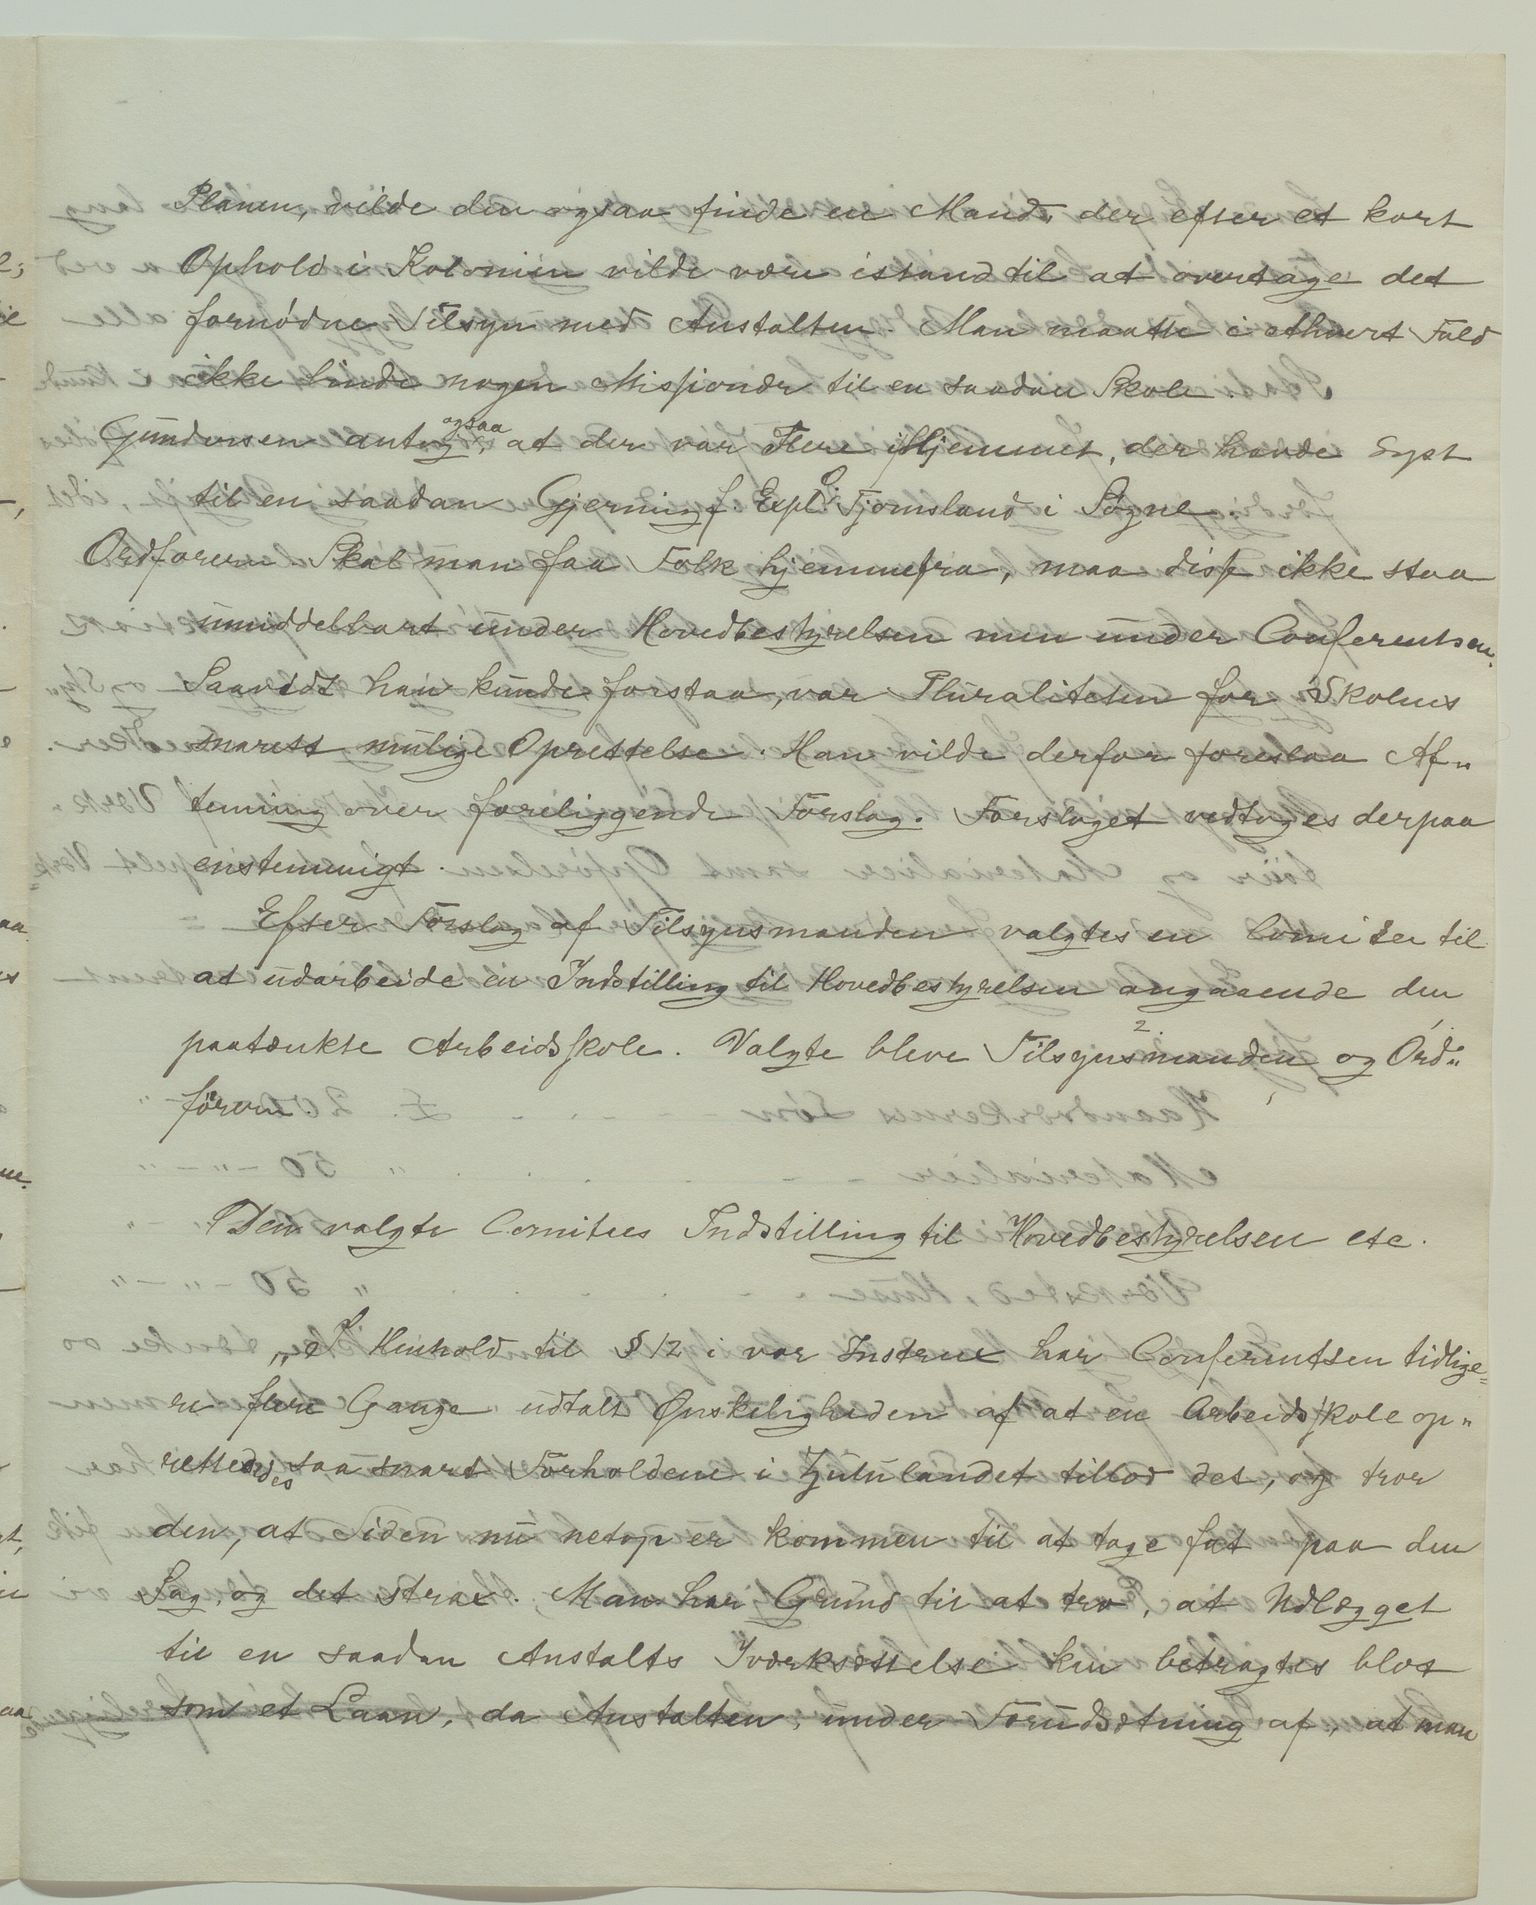 Planen, vilde den ogsaa finde en Mand, der efter et kort
Ophold i Kolonien vilde være istand til at overtage det
fornødne Tilsyn med Anstalten. Man maatte i ethvert Fald
ikke binde nogen Missionær til en saadan Skole.
Gundersen antog ogsaa, at der var Flere i Hjemmet, der havde Lyst
til en saadan Gjerning f. Expl. O. Tjomsland i Søgne.
Ordføreren. Skal man faa Folk hjemmefra, maa disse ikke staa
umiddelbart under Hovedbestyrelsen men under Conferentsen.
Saavidt han kunde forstaa, var Pluraliteten for Skolens
snarest mulige Oprettelse. Han vilde derfor foreslaa Af„
temning over foreliggende Forslag. Forslaget vedtoges derpaa
enstemmigt.
Efter Forslag af Tilsynsmanden valgtes en Comitee til
at udarbeide en Indstilling til Hovedbestyrelsen angaaende den
paatænkte Arbeidsskole. Valgte bleve Tilsynsmanden 2. og Ord„
føreren.
Den valgte Comitees Indstilling til Hovedbestyrelsen etc.
„I Henhold til § 12 i vor Instrux har Conferentsen tidlige=
re flere Gange udtalt Ønskeligheden af at en Arbeidsskole op„
rettedes saa snart Forholdene i Zululandet tillod det, og tror
den, at Tiden nu netop er kommen til at tage fat paa den
Sag, og det strax. Man har Grund til at tro, at Udlægget
til en saadan Anstalts Iværksættelse kun betragtes blot
som et Laan, da Anstalten, under Forudsætning af, at man